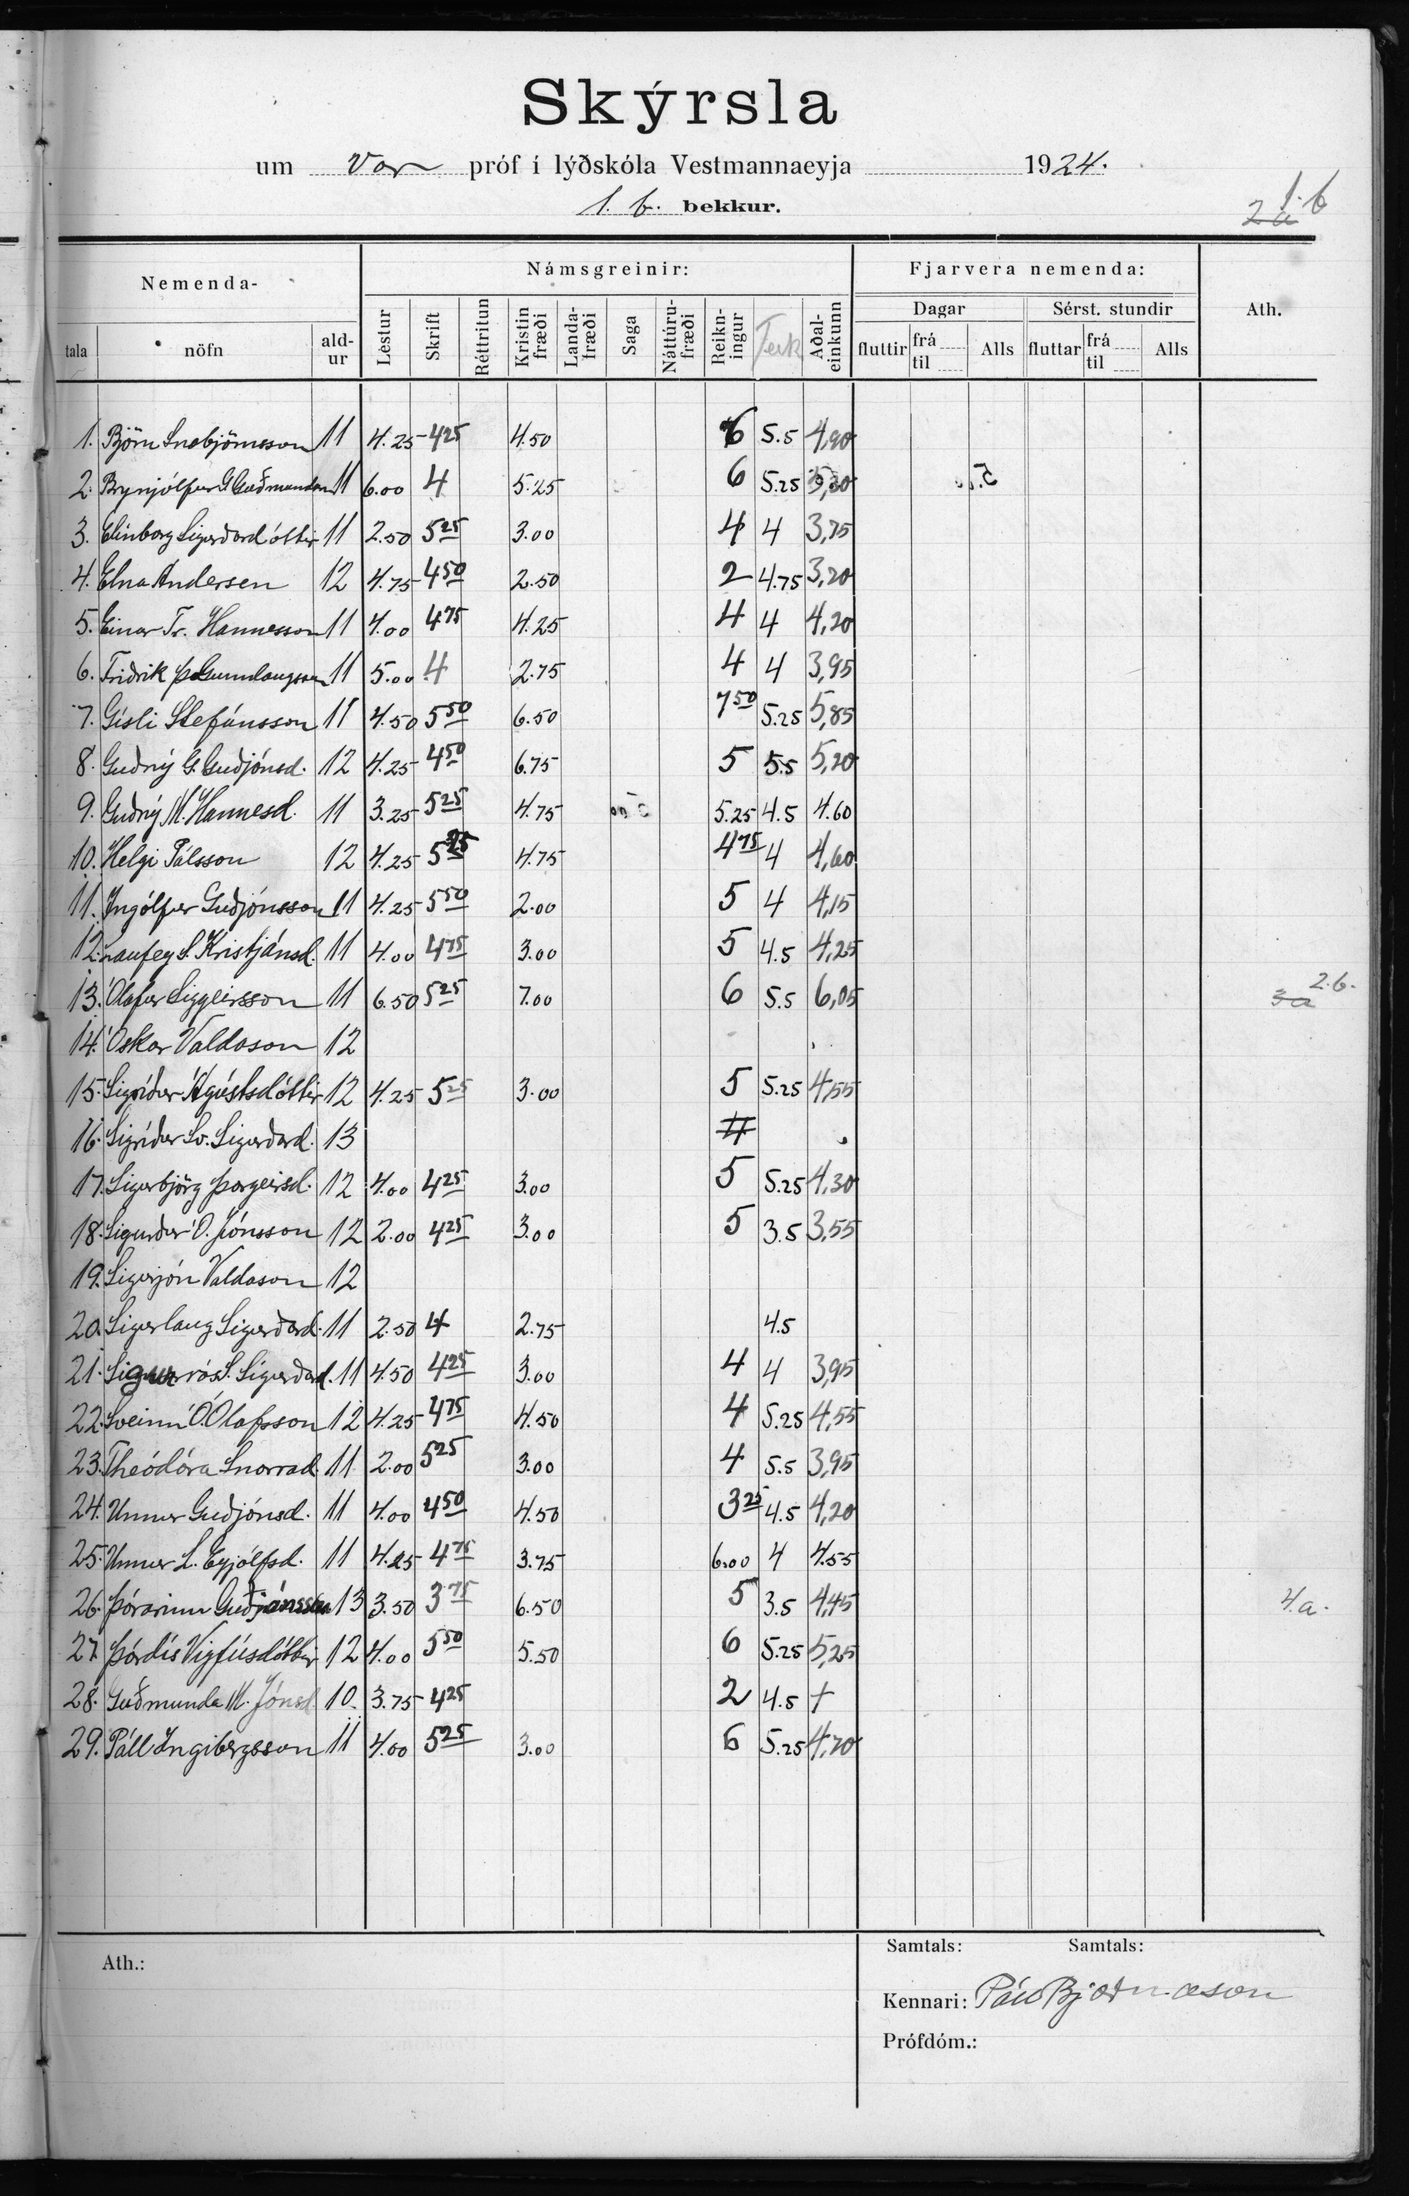 Skýrsla
um Vor próf í lýðskóla Vestmannaeyja 1924.
1. b. bekkur.
1.b
2a
Nemenda- Námsgreinir: Fjarvera nemenda: Ath.
Dagar Sérst. stundir
tala nöfn ald-ur Lestur Skrift Réttritun Kristin fræði Landa-fræði Saga Náttúru-fræði Reikn-ingur Teik Aðal-einkunn fluttir frá til Alls fluttar frá til Alls
1. Björn Snæbjörnsson 11 4.25 4 25 4.50 6 5.5 4,90
2. Brynjólfur G Guðmundsson 11 6.00 4 5.25 6 5.25 5,30
3. Elinborg Sigurðardóttir 11 2.50 5 25 3.00 4 4 3,75
4. Elna Andersen 12 4.75 4 50 2.50 2 4.75 3,20
5. Einar Tr. Hannesson 11 4.00 4 75 4.25 4 4 4,20
6. Friðrik Þ Gunnlaugsson 11 5.00 4 2.75 4 4 3,95
7. Gísli Stefánsson 11 4.50 5 50 6.50 7 50 5.25 5,85
8. Guðný G. Guðjónsd. 12 4.25 4 50 6.75 5 5.5 5,20
9. Guðný M. Hannesd. 11 3.25 5 25 4.75 5.25 4.5 4.60
10. Helgi Pálsson 12 4.25 5 25 4.75 4 75 4 4,60
11. Ingólfur Guðjónsson 11 4.25 5 50 2.00 5 4 4,15
12. Laufey S. Kristjánsd. 11 4.00 4 75 3.00 5 4.5 4,25
13. Ólafur Siggeirsson 11 6.50 5 25 7.00 6 5.5 6,05 2.b. 3a
14. Óskar Valdason 12
15. Sigríður Ágústsdóttir 12 4.25 5 25 3.00 5 5.25 4,55
16. Sigríður Sv. Sigurðard. 13
17. Sigurbjörg Þorgeirsd. 12 4.00 4 25 3.00 5 5.25 4,30
18. Sigurður Ó. Jónsson 12 2.00 4 25 3.00 5 3.5 3,55
19. Sigurjón Valdason 12
20. Sigurlaug Sigurðard. 11 2.50 4 2.75 4.5
21. Sigurrós S. Sigurðard. 11 4.50 4 25 3.00 4 4 3,95
22. Sveinn Ó. Ólafsson 12 4.25 4 75 4.50 4 5.25 4,55
23. Theódóra Snorrad. 11 2.00 5 25 3.00 4 5.5 3,95
24. Unnur Guðjónsd. 11 4.00 4 50 4.50 3 25 4.5 4,20
25. Unnur L. Eyjólfsd. 11 4.25 4 75 3.75 6.00 4 4.55
26. Þórarinn Guðjónsson 13 3.50 3 75 6.50 5 3.5 4,45 4.a.
27. Þórdís Vigfúsdóttir 12 4.00 5 50 5.50 6 5.25 5,25
28. Guðmunda M. Jónsd. 10 3.75 4 25 2 4.5 +
29. Páll Ingibergsson 11 4.00 5 25 3.00 6 5.25 4,70
Ath.: Samtals: Samtals:
Kennari: Páll Bjarnason
Prófdóm.: